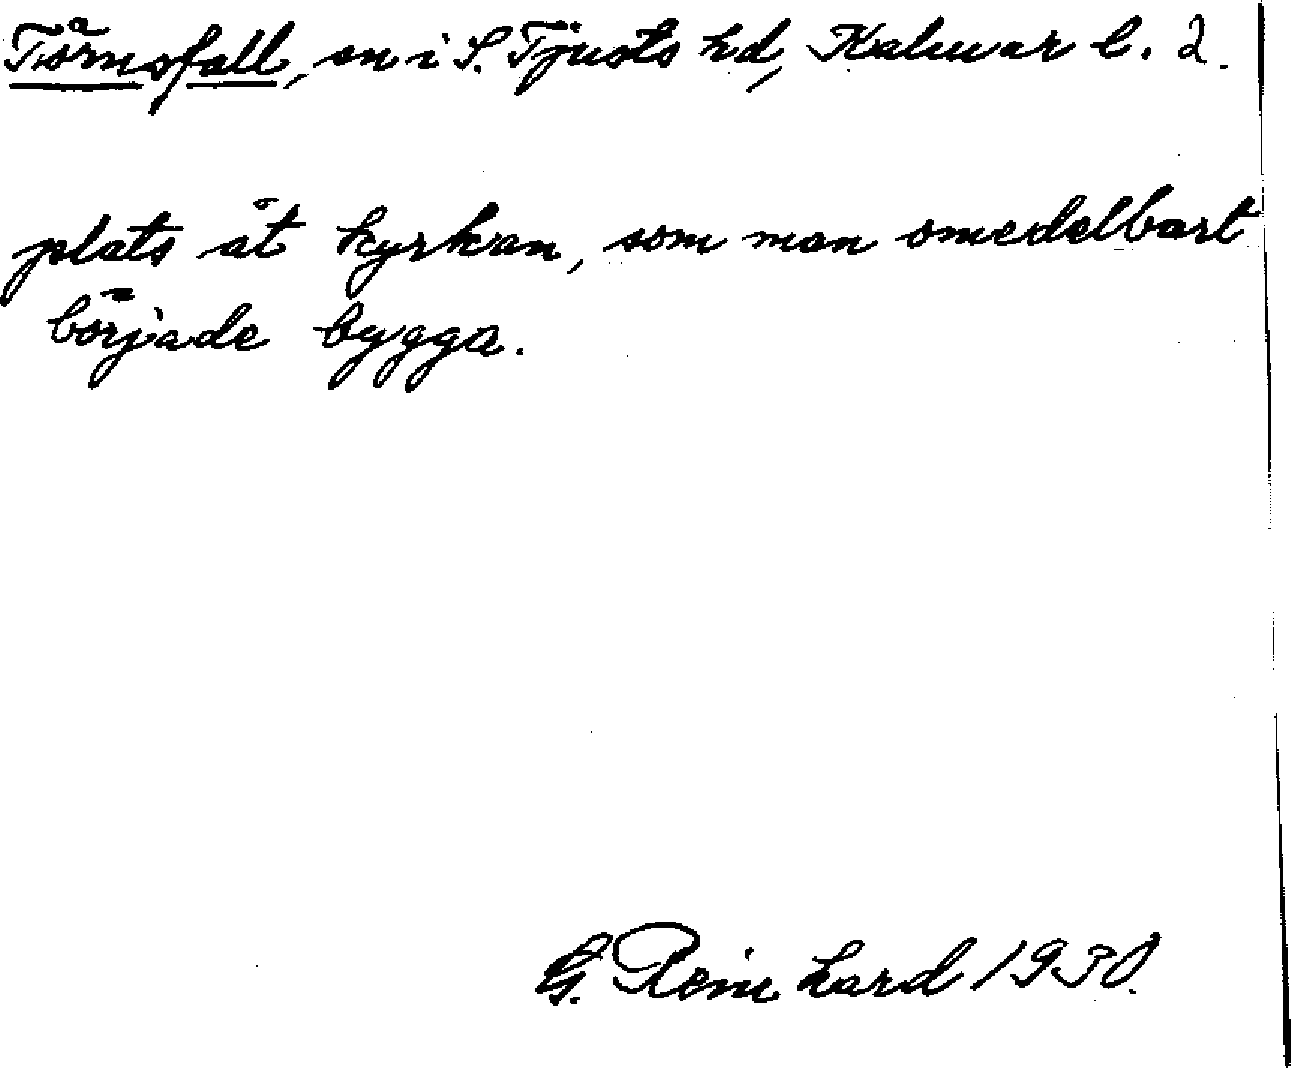 Törnsfall, sn i S. Tjusts hd, Kalmar l. 2.
plats åt kyrkan, som man omedelbart
började bygga.
G. Reinhard 1930.